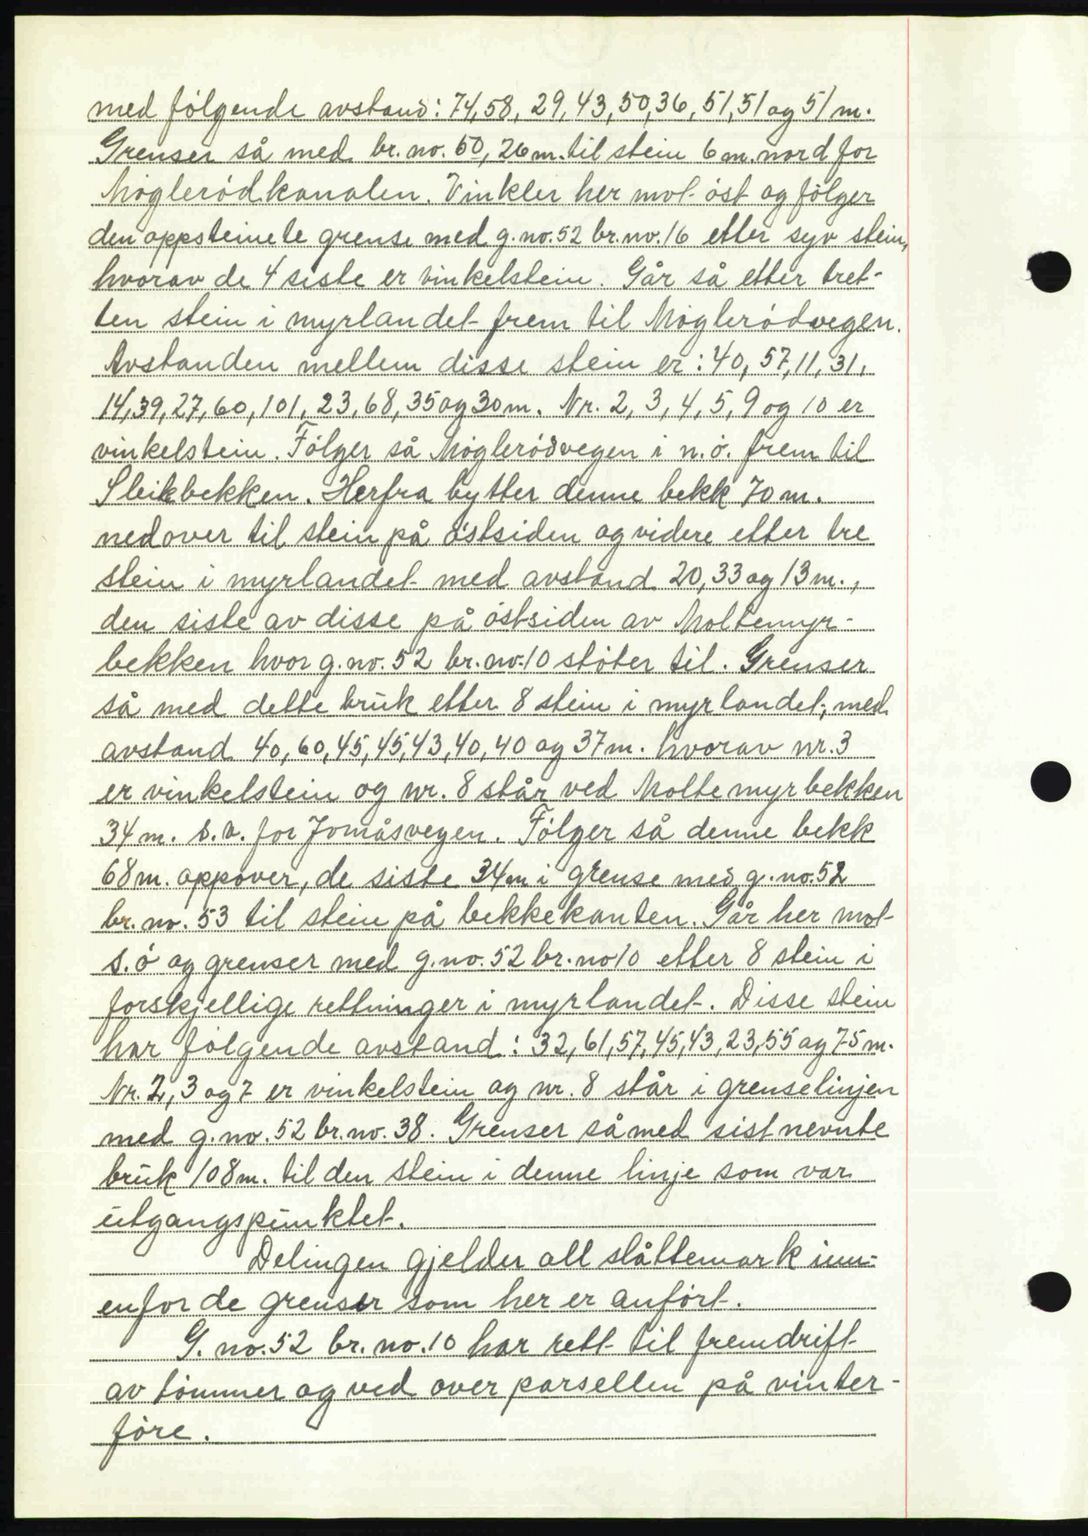 med følgende avstand: 74, 58, 29, 43, 50, 36, 51, 51 og 51 m.
Grenser så med br. no. 50, 26 m. til stein 6 m. nord for
Møglerødkanalen. Vinkler her mot øst og følger
den oppsteinete grense med g. no. 52 br. no. 16 etter syv stein,
hvorav de 4 siste er vinkelstein. Går så etter tret-
ten stein i myrlandet frem til Møglerødvegen.
Avstanden mellem disse stein er: 40, 57, 11, 31,
14, 39, 27, 60, 101, 23, 68, 35 og 30 m. Nr. 2, 3, 4, 5, 9 og 10 er
vinkelstein. Følger så Møglerødvegen i n.ø. frem til
Sleikbekken. Herfra bytter denne bekk 70 m.
nedover til stein på østsiden og videre etter tre
stein i myrlandet med avstand 20, 33 og 13 m.,
den siste av disse på østsiden av Moltemyr-
bekken hvor g. no. 52 br. no. 10 støter til. Grenser
så med dette bruk etter 8 stein i myrlandet, med
avstand 40, 60, 45, 45, 43, 40, 40 og 37 m. hvorav nr. 3
er vinkelstein og nr. 8 står ved Moltemyrbekken
34 m. s.v. for Jomåsvegen. Følger så denne bekk
68 m. oppover, de siste 34 m i grense med g. no. 52
br. no. 53 til stein på bekkekanten. Går her mot
s.ø og grenser med g. no. 52 br. no 10 etter 8 stein i
forskjellige rettninger i myrlandet. Disse stein
har følgende avstand: 32, 61, 57, 45, 43, 23, 55 og 75 m.
Nr. 2, 3 og 7 er vinkelstein og nr. 8 står i grenselinjen
med g. no. 52 br. no. 38. Grenser så med sistnevnte
bruk 108 m. til den stein i denne linje som var
utgangspunktet.
Delingen gjelder all slåttemark inn-
enfor de grenser som her er anført.
G. no. 52 br. no. 10 har rett til fremdrift
av tømmer og ved over parsellen på vinter-
føre.